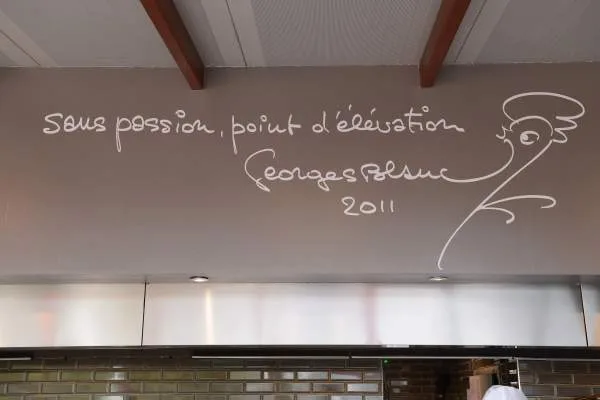 Sans passion, point d'élévation
Georges Blanc
2011